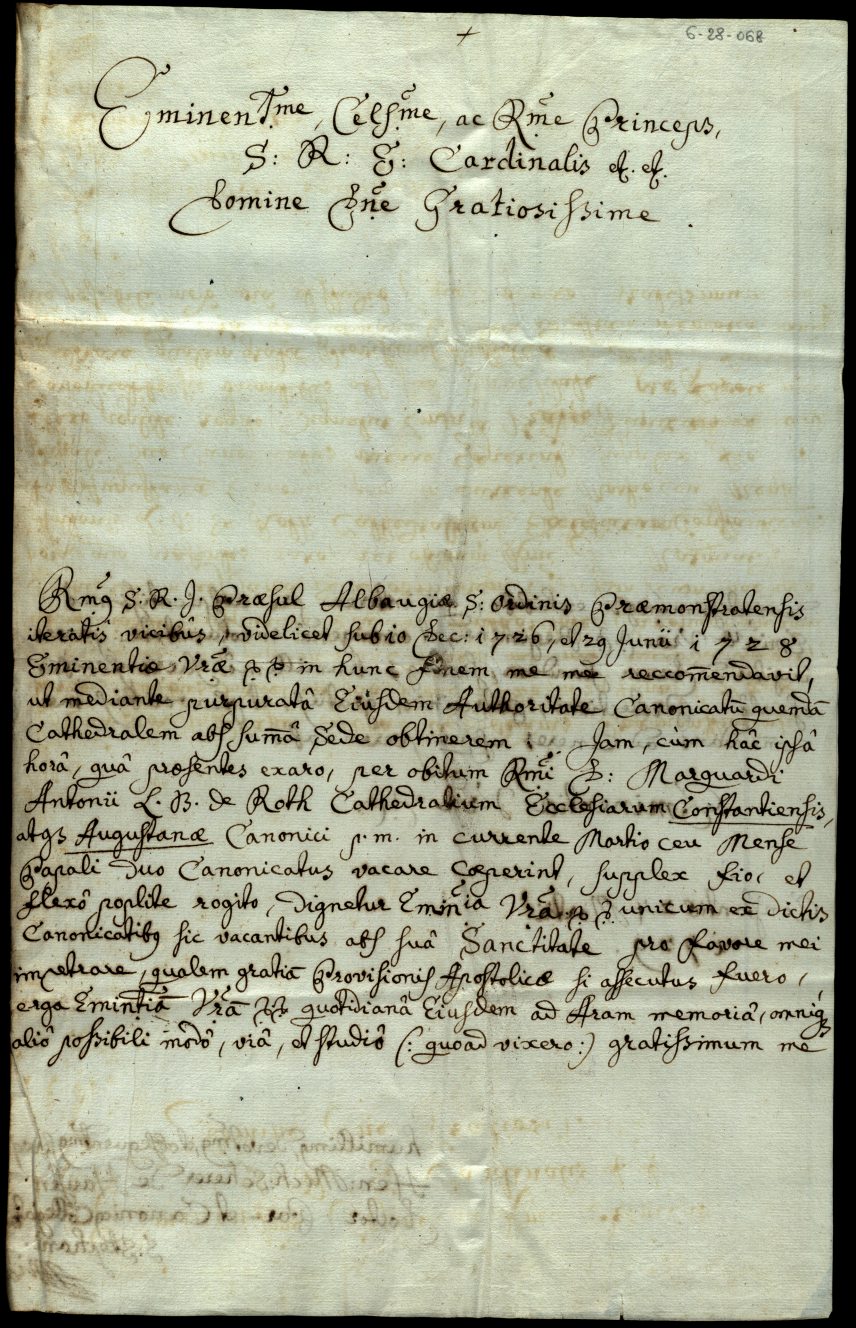 +
6-28-068
Eminentme, Celsme, ac Rme Princeps,
S: R: E: Cardinalis etc. etc.
Domine Dne Gratiosissime
Rmq S: R. J. Præsul Albaugiæ S: Ordinis Præmonstratensis
iteratis vicibus, videlicet sub 10 Dec: 1726, et 29 Junii 1728
Eminentiæ Vræ in hunc finem me reccom̄endavit,
ut mediante purpuratâ Eiusdem Authoritate Canonicatū quemdā
Cathedralem abs sum̄â Sede obtinerem. Jam, cùm hâc ipsâ
horâ, quâ præsentes exaro, per obitum Rmi D: Marquardi
Antonii L. B. de Roth Cathedralium Ecclesiarum Constantiensis,
atq3 Augustanæ Canonici p. m. in currente Martio ceu Mense
Papali duo Canonicatus vacare cœperint, supplex fio, et
flexô poplite rogito, dignetur Emin̄ia Vrā unicum ex dictis
Canonicatibq sic vacantibus abs suâ Sanctitate pro favore mei
impetrare, qualem gratiā Provisionis Apostolicæ si assecutus fuero,
erga Emintiā Vrā quotidianâ Eiusdem ad Aram memoriâ, omniq3
aliô possibili modô, viâ, et studiô (: quoad vixero:) gratissimum me